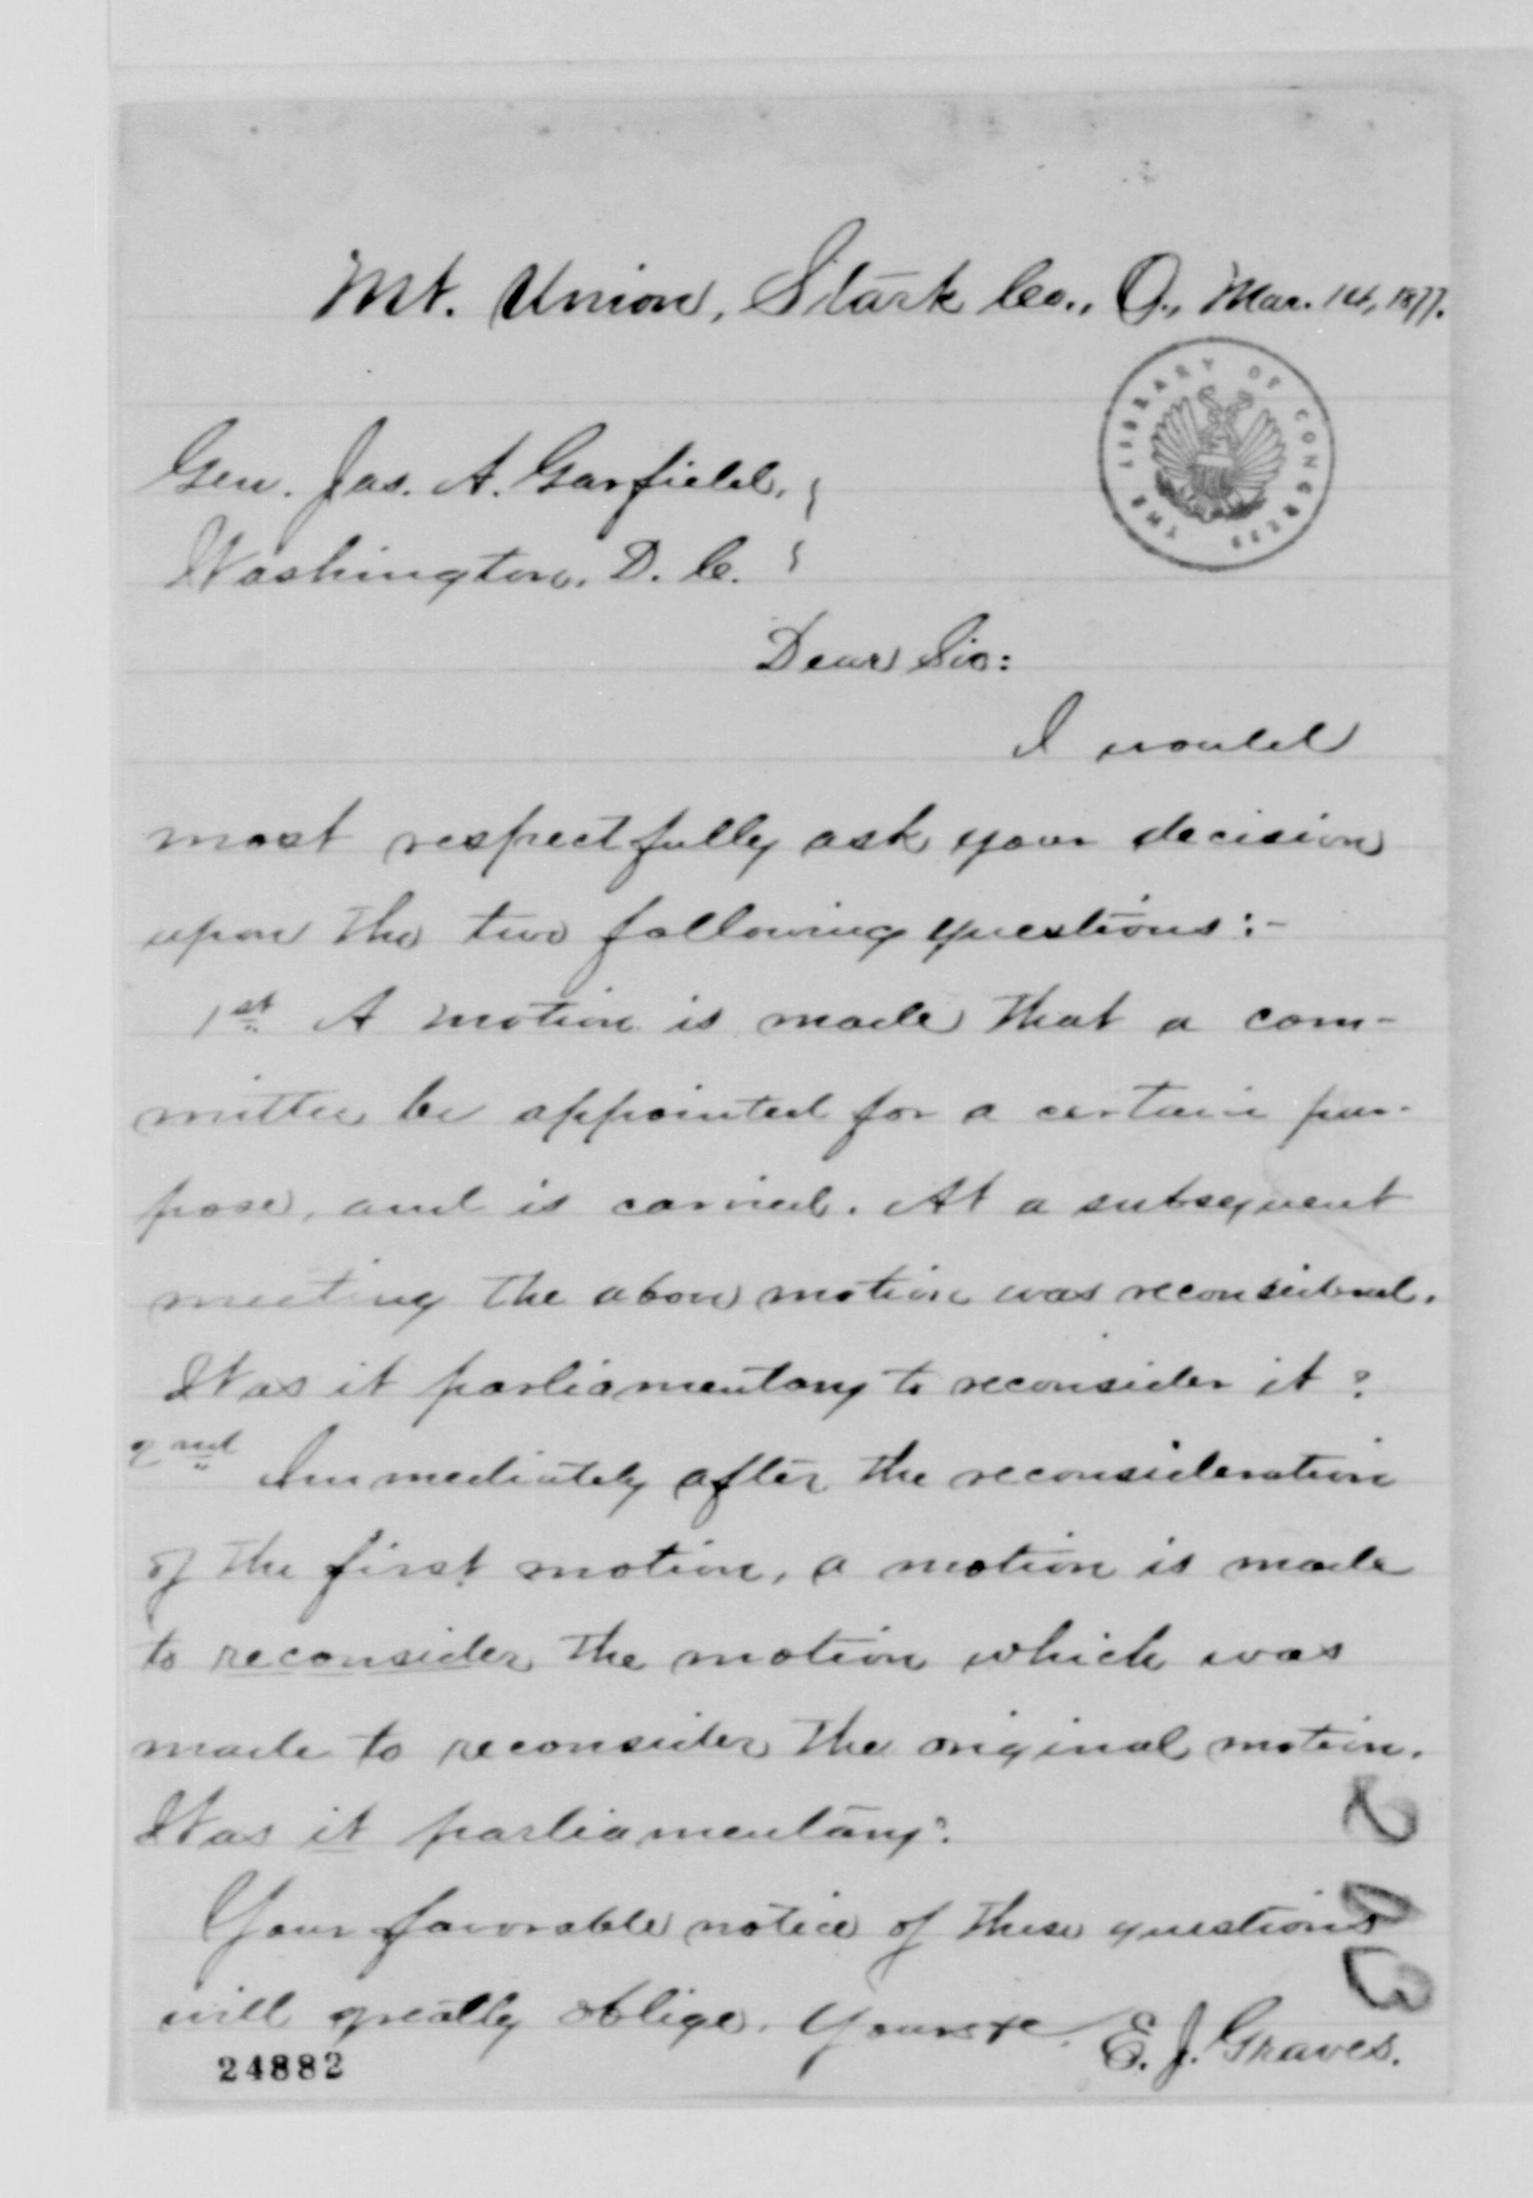 Mt. Union, Stark Co., O., Mar. 14, 1877.
THE LIBRARY OF CONGRESS
Gen. Jas. A. Garfield,
Washington, D. C.
Dear Sir:
I would
most respectfully ask your decision
upon the two following questions:-
1st A motion is made that a com-
mittee be appointed for a certain pur-
pose, and is carried. At a subsequent
meeting the above motion was reconsidered.
Was it parliamentary to reconsider it?
2nd Immediately after the reconsideration
of the first motion, a motion is made
to reconsider the motion which was
made to reconsider the original motion.
Was it parliamentary?
Your favorable notice of these questions
will greatly oblige. Yours &c. E. J. Graves.
24882